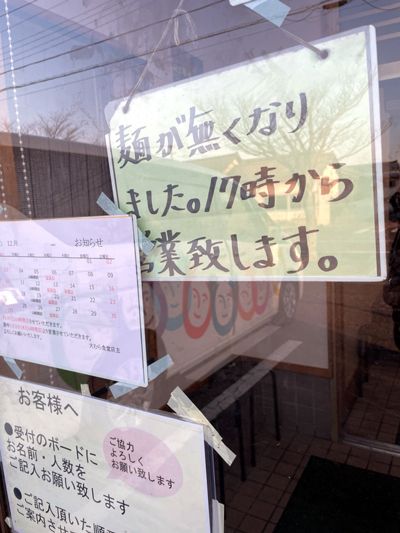 麺が無くなり
ました。17時から
営業致します。
12月
お知らせ
大むら食堂店主
お客様へ
●受付のボードに
お名前・人数を
ご記入お願い致します
ご協力
よろしく
お願い致します
●ご記入頂いた順
ご案内させ